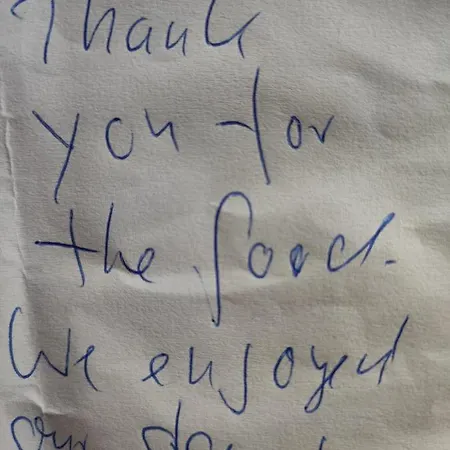 Thank
you for
the food.
We enjoyed
our